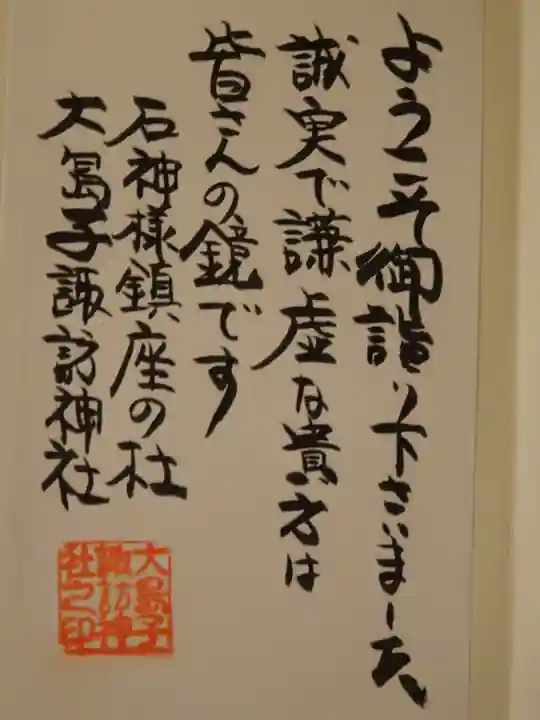 ようこそ御詣り下さいました
誠実で謙虚な貴方は
皆さんの鏡です
石神様鎮座の社
大島子諏訪神社
大島子
諏訪神
社之印